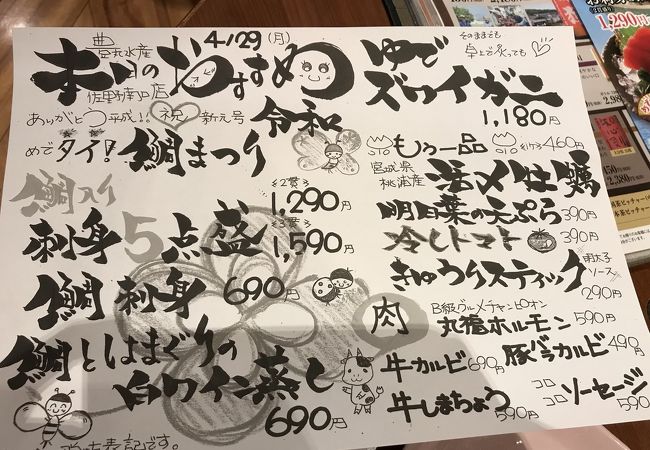 豊丸水産
佐野南口店
4/29(月)
本日のおすすめ
ありがとう平成!! 祝! 新元号
令和
めでタイ! 鯛まつり
鯛入り
刺身5点盛
1,290円
1,590円
鯛刺身 690円
鯛とはまぐりの
白ワイン蒸し
690円
表記です。
そのままでも
卓上で炙っても
ゆで
ズワイガニ
1,180円
もう一品
宮城県
桃浦産
活〆牡蠣
460円
明日葉の天ぷら 390円
冷しトマト 390円
きゅうりスティック
明太子
ソース
290円
肉
B級グルメチャンピオン
丸徳ホルモン 590円
牛カルビ 690円
豚バラカルビ 490円
牛しまちょう 590円
コロコロ ソーセージ 590
1,290円